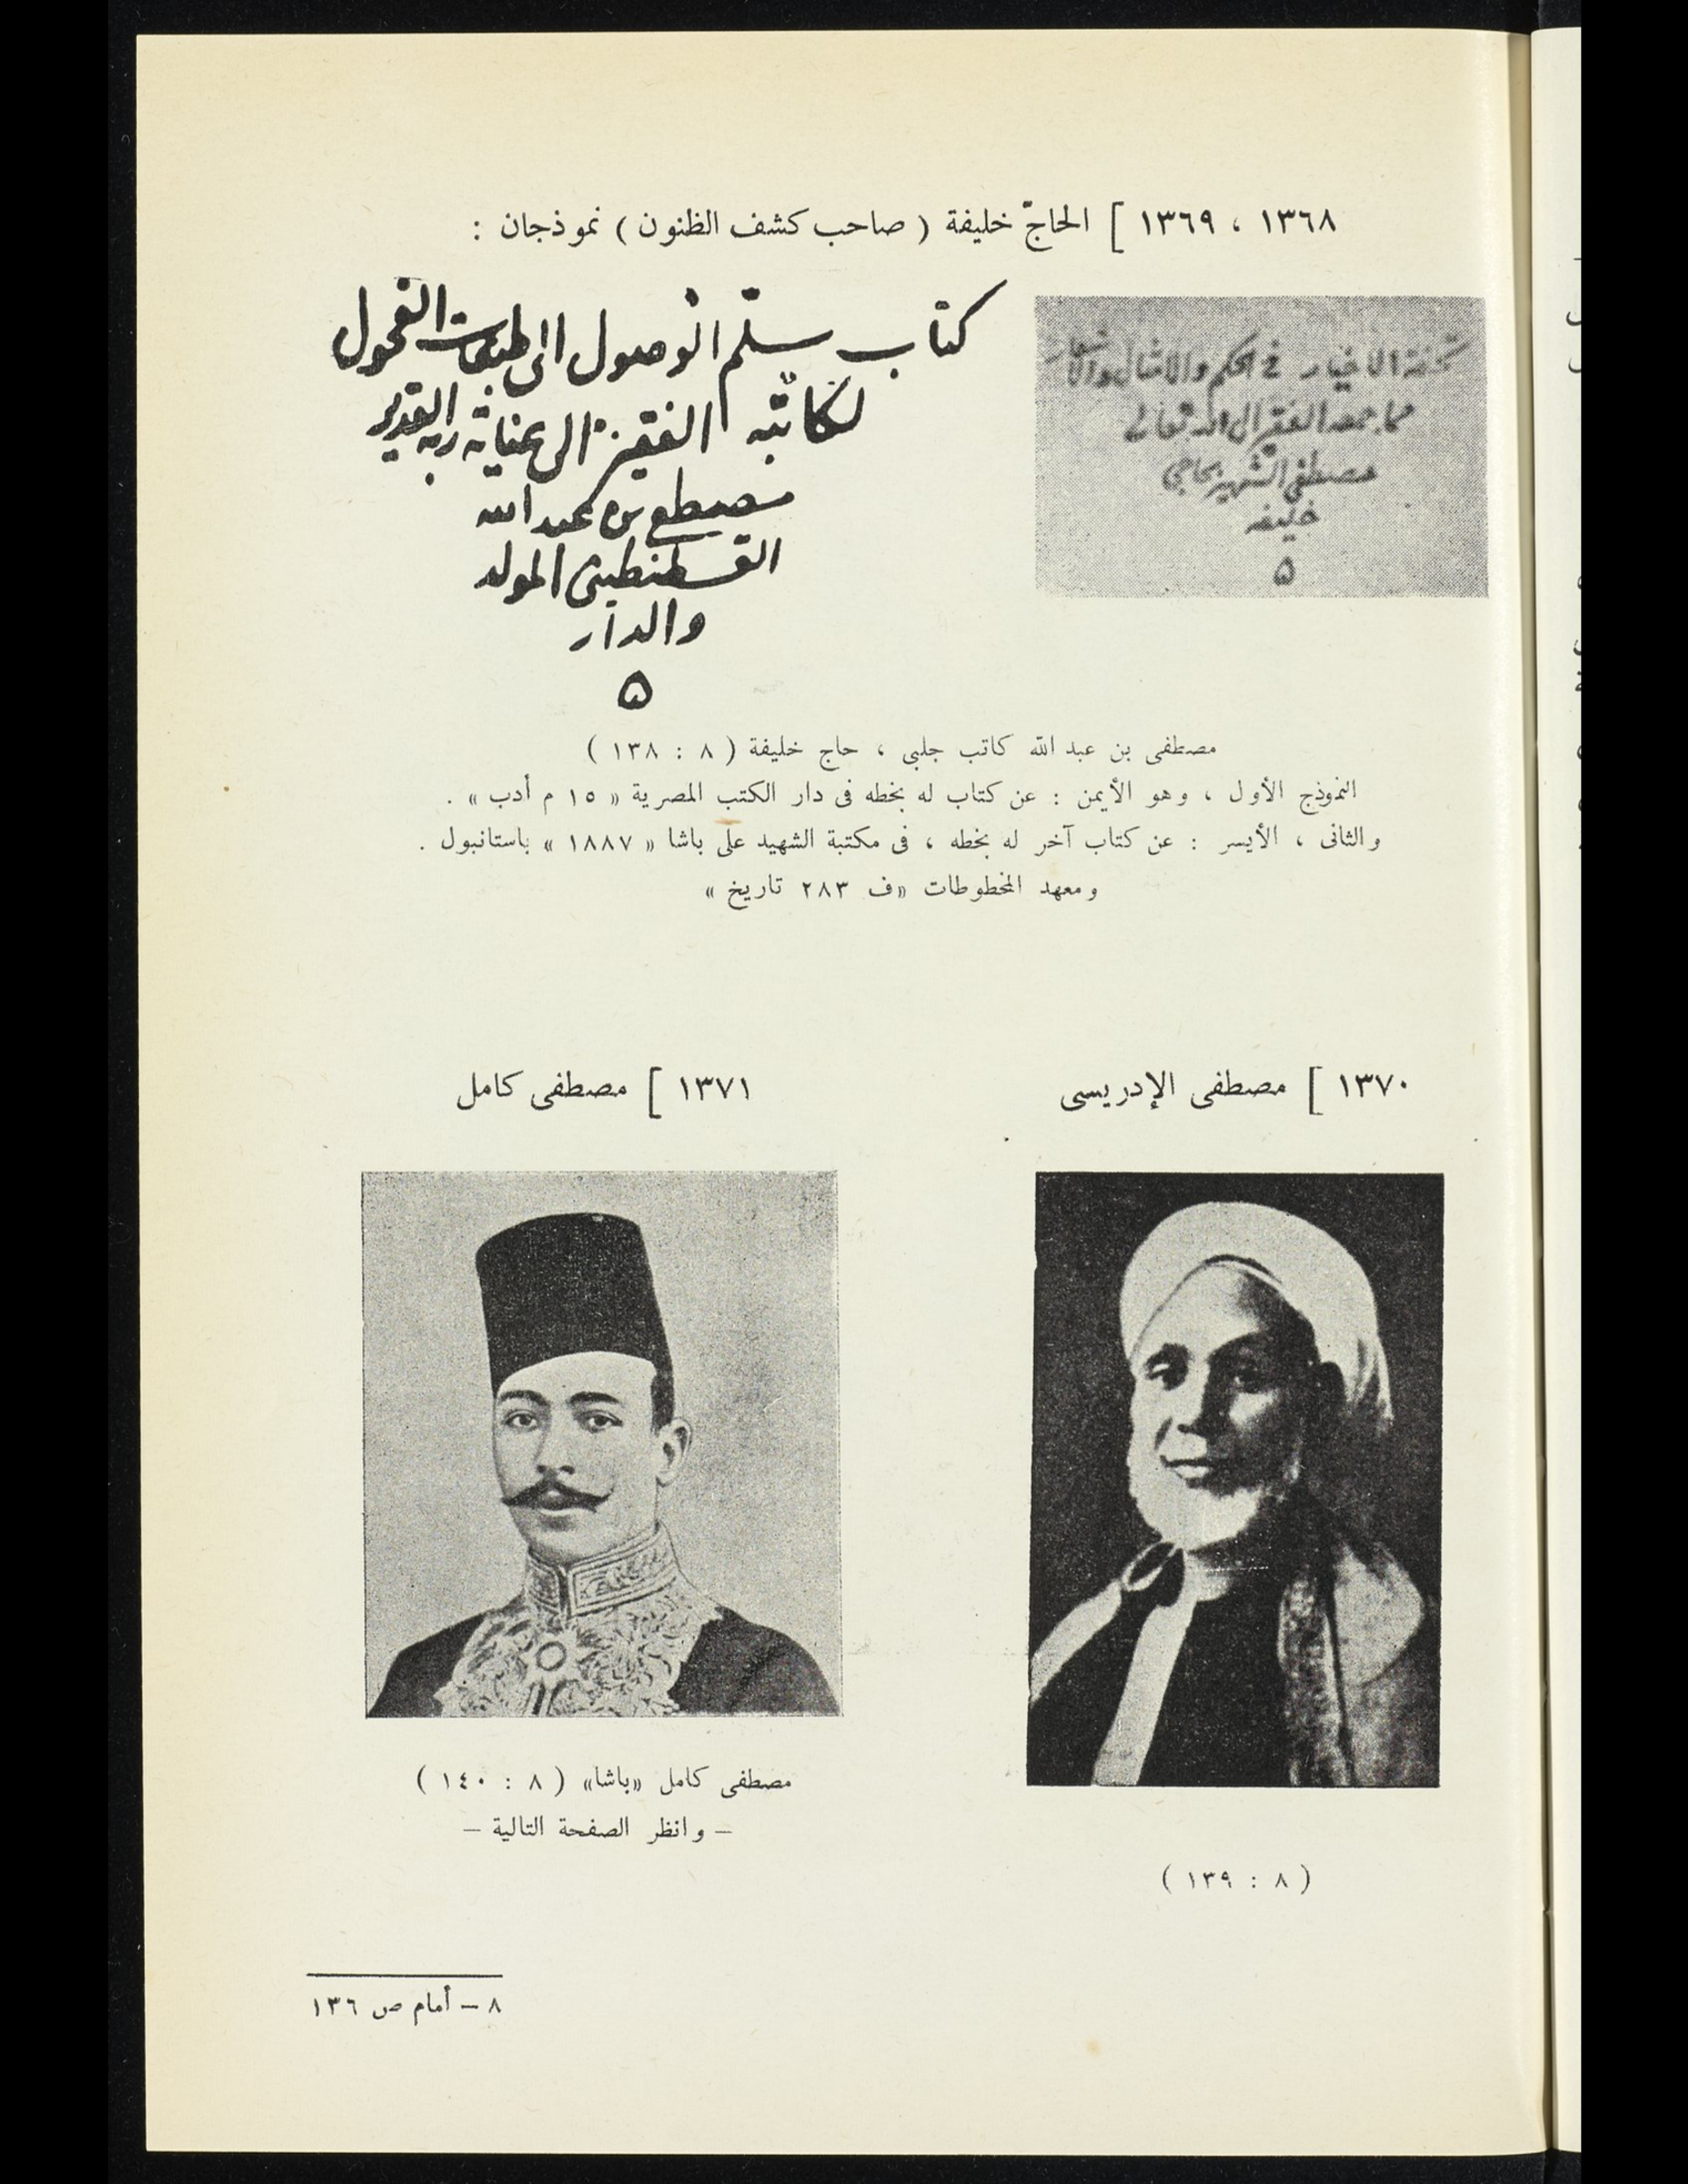 ١٣٦٨ ، ١٣٦٩ ] الحاجّ خليفة ( صاحب كشف الظنون ) نموذجان :
تحفة الاخيار في الحكم والامثال والاشعار
مما جمعه الفقير الى الله تعالى
مصطفى الشهير بحاجي
خليفه
۵
كتاب سلّم الوصول الى طبقات الفحول
لكاتبه الفقير الى عناية ربه القدير
مصطفى بن عبد الله
القسطنطينى المولد
والدار
۵
مصطفى بن عبد الله كاتب جلبى ، حاج خليفة ( ٨ : ١٣٨ )
النموذج الأول ، وهو الأيمن : عن كتاب له بخطه فى دار الكتب المصرية « ١٥ م أدب » .
والثانى ، الأيسر : عن كتاب آخر له بخطه ، فى مكتبة الشهيد على باشا « ١٨٨٧ » باستانبول .
ومعهد المخطوطات «ف ٢٨٣ تاريخ »
١٣٧٠ ] مصطفى الإدريسى
١٣٧١ ] مصطفى كامل
( ٨ : ١٣٩ )
مصطفى كامل «باشا» ( ٨ : ١٤٠ )
– وانظر الصفحة التالية –
٨ – أمام ص ١٣٦